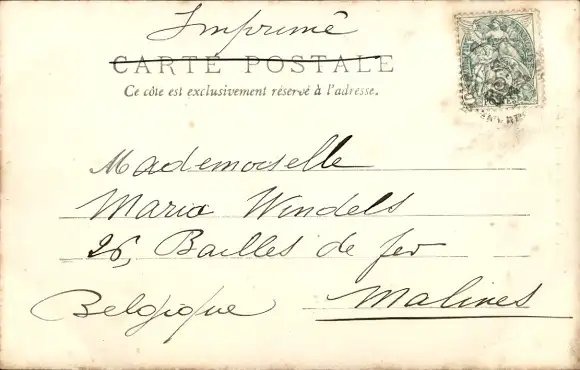 Imprimé
CARTE POSTALE
Ce côté est exclusivement réservé à l'adresse.
Mademoiselle
Maria Windels
26, Bailles de fer
Belgique Malines